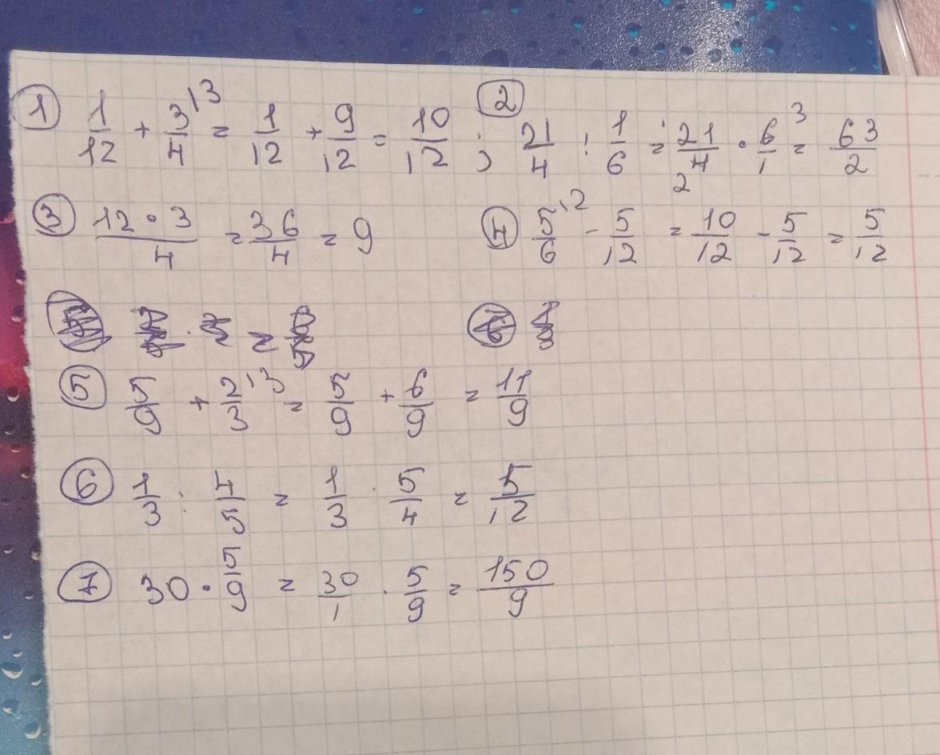 ① 1/12 + 3/4^{13} = 1/12 + 9/12 = 10/12 ; [2] 21/4 : 1/6 = 21/4 · 6/1 = 63/2 (2, 3)
③ 12·3/4 = 36/4 = 9 ④ 5/6^{12} - 5/12 = 10/12 - 5/12 = 5/12
⑤ 5/9 + 2/3^{13} = 5/9 + 6/9 = 11/9
⑥ 1/3 : 4/5 = 1/3 · 5/4 = 5/12
⑦ 30 · 5/9 = 30/1 · 5/9 = 150/9